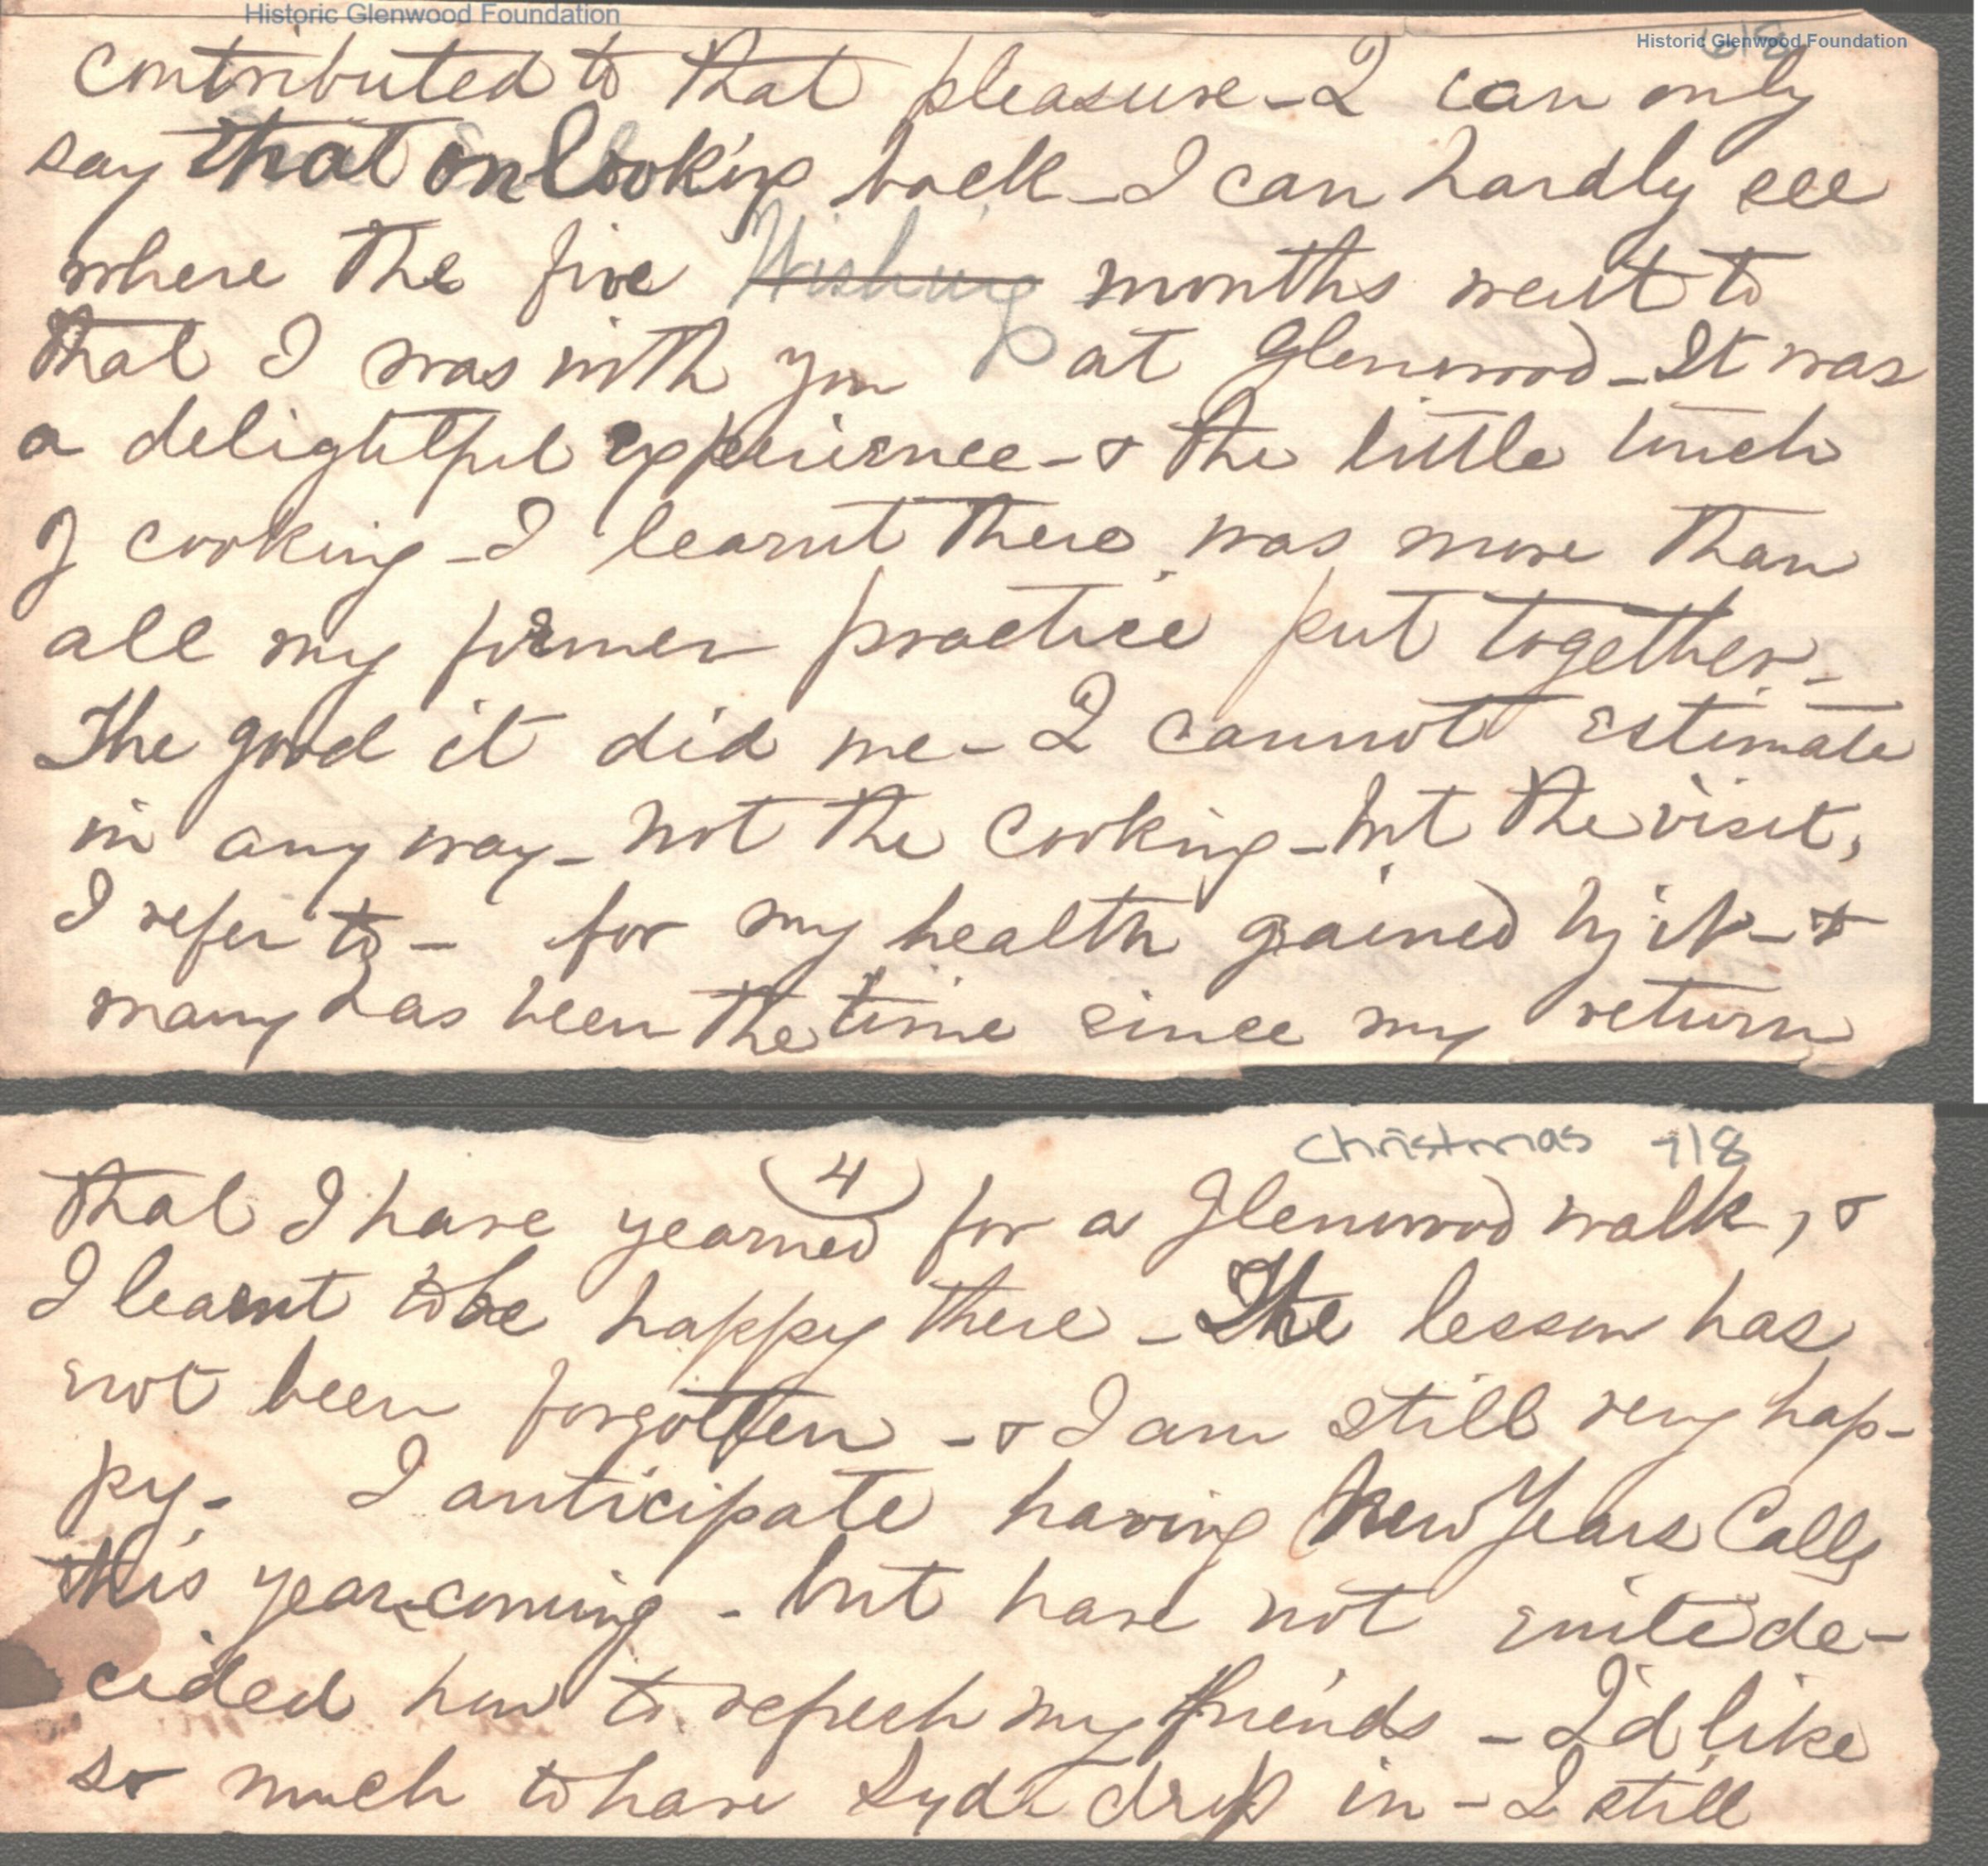 Historic Glenwood Foundation
6/8
Historic Glenwood Foundation
contributed to that pleasure - I can only
say that on looking back - I can hardly see
where the five Wishing months went to
that I was with you at Glenwood - It was
a delightful experience - & the little touch
of cooking - I learnt there was more than
all my former practice put together -
The good it did me - I cannot estimate
in any way - not the cooking - but the visit,
I refer to - for my health gained by it - &
many has been the time since my return
Christmas 7/8
4
that I have yearned for a Glenwood walk, &
I learnt to be happy there - The lesson has
not been forgotten - & I am still very hap-
py - I anticipate having New Years Calls
this year coming - but have not quite de-
cided how to refresh my friends - I'd like
so much to have Syd drop in - I still